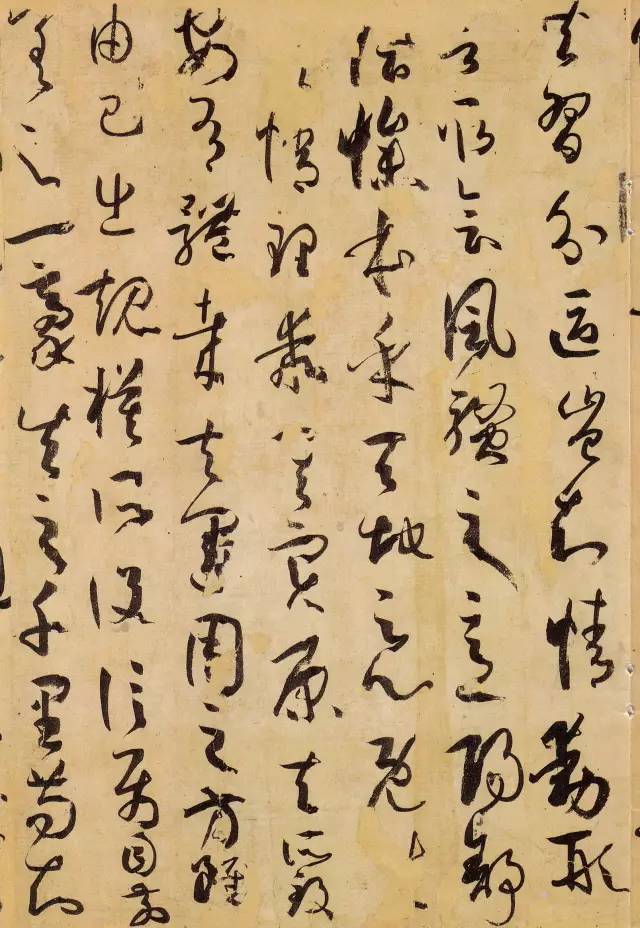 共習分區豈知情動形
言取會風騷之意陽舒
陰慘本乎天地之心既
情理乖其實原夫所致
安有體哉夫運用之方雖
由己出規模所設信屬目前
差之一豪失之千里苟知